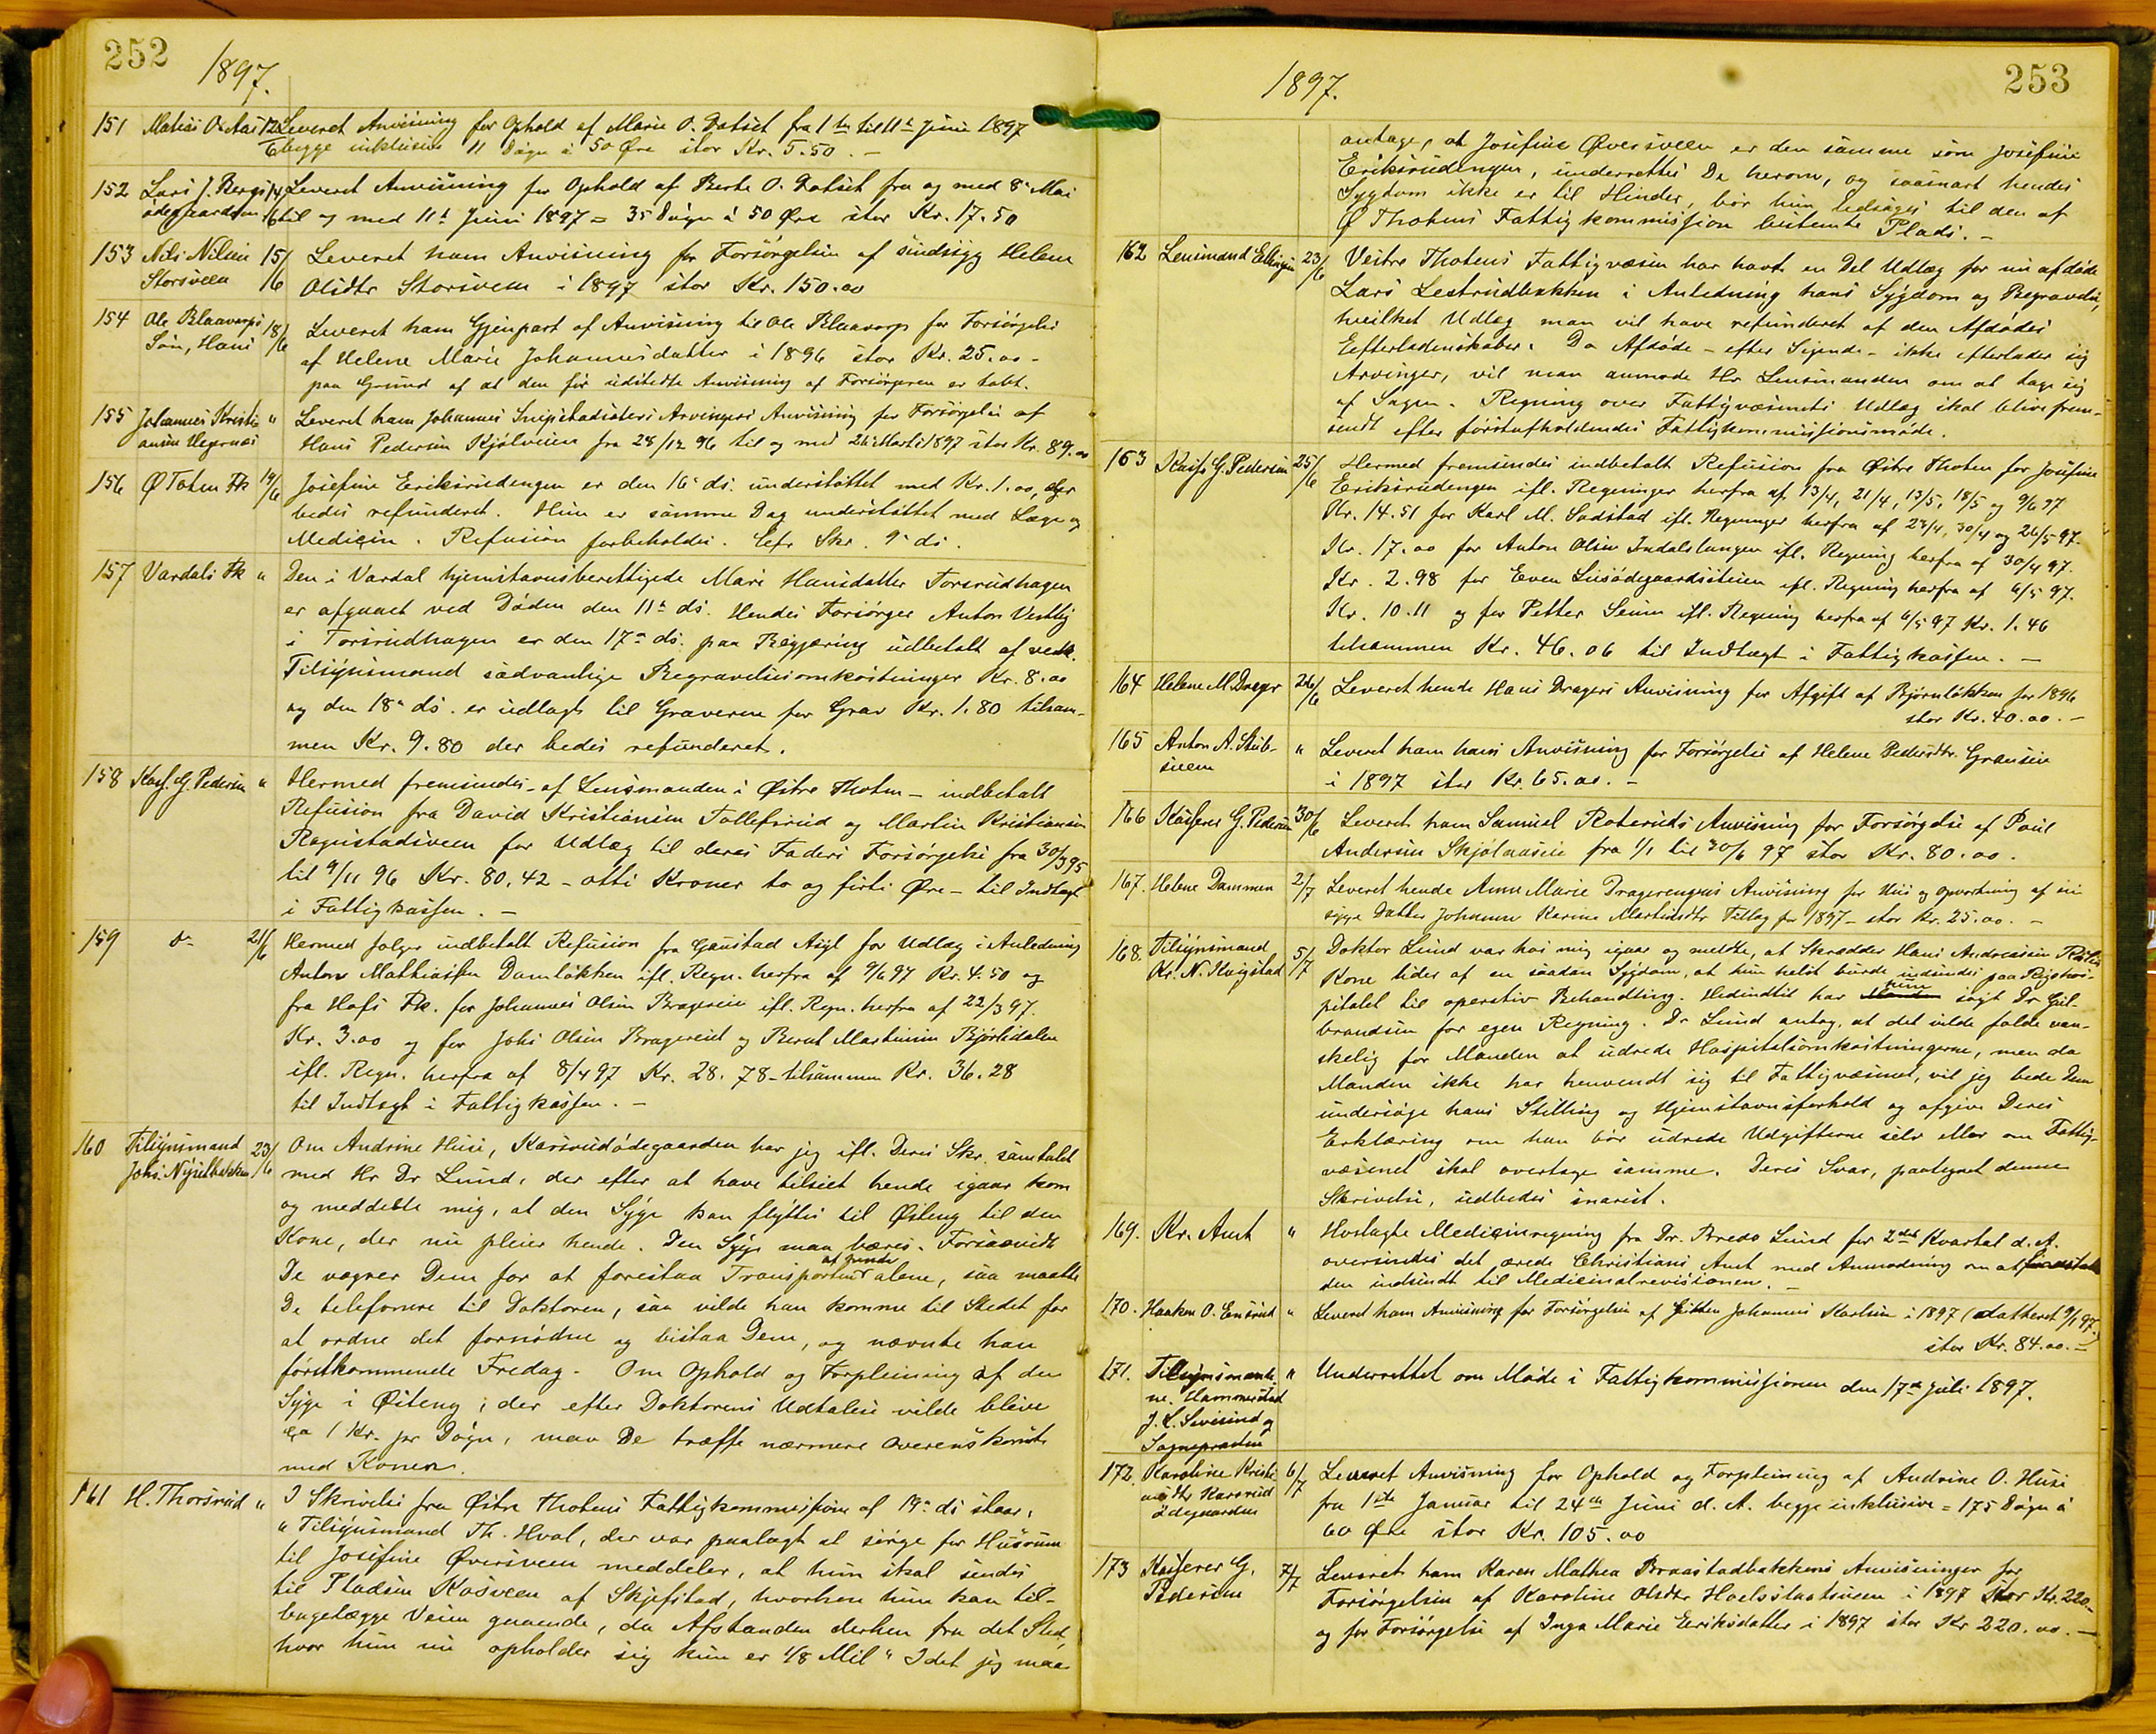 252
1897.
151 Matias O. Aas 12/6 Leveret Anvisning for Ophold af Marie O. Dotset fra 1ste til 11te Juni 1897
begge inklusive 11 Døgn à 50 Øre stor Kr. 5.50. –
152 Lars J. Bergs 14/6 Leveret Anvisning for Ophold af Berte O. Dotset fra og med 8de Mai
ødegaarden til og med 11te Juni 1897 = 35 Døgn à 50 Øre stor Kr. 17.50
153 Nils Nilsen 15/6 Leveret ham Anvisning for Forsørgelsen af sindssyg Helene
Storsveen Olsdtr Storsveen i 1897 stor Kr. 150.00
154 Ole Blaavarps 18/6 Leveret ham Gjenpart af Anvisning til Ole Blaavarp for Forsørgelse
Søn, Hans af Helene Marie Johannesdatter i 1896 stor Kr. 25.00 –
paa Grund af at den før udstedte Anvisning af Forsørgeren er tabt.
155 Johannes Kristi- " Leveret ham Johannes Snipstadsæters Arvingers Anvisning for Forsørgelse af
ansen Hegernæs Hans Pedersen Kjølveien fra 28/12 96 til og med 26 Marts 1897 stor Kr. 89.00
156 Ø Toten Fk 19/6 Josefine Eriksrudengen er den 16de ds. understøttet med Kr. 1.00, der
bedes refunderet. Hun er samme Dag understøttet med Læge og
Medicin. Refusion forbeholdes. Cfr Skr. 9de ds.
157 Vardals Fk " Den i Vardal hjemstavnsberettigede Mari Hansdatter Forsrudhagen
er afgaaet ved Døden den 11te ds. Hendes Forsørger Anton Vestlig
i Forsrudhagen er den 17de ds. paa Begjæring udbetalt af vedk.
Tilsynsmand sædvanlige Begravelsesomkostninger Kr. 8.00
og den 18de ds. er udlagt til Graveren for Grav Kr. 1.80 tilsam-
men Kr. 9.80 der bedes refunderet.
158 Kasf. G. Pedersen " Hermed fremsendes – af Lensmanden i Østre Thoten – indbetalt
Refusion fra David Kristiansen Tollefsrud og Martin Kristiansen
Rognstadsveen for Udlæg til deres Faders Forsørgelse fra 30/3 95
til 9/11 96 Kr. 80,42 – otti Kroner to og firti Øre – til Indtægt
i Fattigkassen. –
159 do 21/6 Hermed følger indbetalt Refusion fra Gaustad Asyl for Udlæg i Anledning
Anton Mathiassen Damløkken ifl. Regn. herfra af 9/6 97 Kr. 4.50 og
fra Hofs Fk. for Johannes Olsen Bragereie ifl. Regn. herfra af 22/3 97.
Kr. 3.00 og for Johs Olsen Bragereiet og Bernt Martinsen Bjørlidalen
ifl. Regn. herfra af 8/4 97 Kr. 28.78 – tilsammen Kr. 36.28
til Indtægt i Fattigkassen. –
160 Tilsynsmand 23/6 Om Andrine Husø, Karsrudødegaarden har jeg ifl. Deres Skr. samtalet
Johs. Nysetbakken med Hr Dr Lund, der efter at have tilseet hende igaar kom
og meddelte mig, at den Syge kan flyttes til Østeng til den
Kone, der nu pleier hende. Den Syge maa bæres. Forsaavidt
De vægrer Dem for at forestaa Transporten at hende alene, saa maatte
De telefonere til Doktoren, saa vilde han komme til Stedet for
at ordne det fornødne og bistaa Dem, og nævnte han
førstkommende Fredag. Om Ophold og Forpleining af den
Syge i Østeng, der efter Doktorens Udtalelse vilde blive
ca 1 Kr. pr Døgn, maa De træffe nærmere Overenskomst
med Konen.
161 H. Thorsrud " I Skrivelse fra Østre Thotens Fattigkommission af 19de ds staar:
"Tilsynsmand Th. Hval, der var paalagt at sørge for Husrum
til Josefine Øversveen meddeler, at hun skal sendes
til Pladsen Kasveen af Skjefstad, hvorhen hun kan til-
bagelægge Veien gaaende, da Afstanden derhen fra det Sted,
hvor hun nu opholder sig kun er 1/8 Mil" Idet jeg maa
253
1897.
antage, at Josefine Øversveen er den samme som Josefine
Eriksrudengen, underrettes De herom, og saasnart hendes
Sygdom ikke er til Hinder, bør hun ledsages til den af
Ø Thotens Fattigkommission bestemte Plads. –
162 Lensmand Ellingsen 23/6 Vestre Thotens Fattigvæsen har havt en Del Udlæg for nu afdøde
Lars Lestrudbakken i Anledning hans Sygdom og Begravelse,
hvilket Udlæg man vil have refunderet af den Afdødes
Eefterladenskaber. Da Afdøde – efter Sigende – ikke efterlader sig
Arvinger, vil man anmode Hr Lensmanden om at tage sig
af Sagen. Regning over Fattigvæsenets Udlæg skal blive frem-
sendt efter førstafholdendes Fattigkommissionsmøde.
163 Kasf. G. Pedersen 25/6 Hermed fremsendes indbetalt Refusion fra Østre Thoten for Josefine
Eriksrudengen ifl. Regninger herfra af 13/4, 21/4, 13/5, 18/5 og 9/6 97
Kr. 14.51 for Karl M. Sodstad ifl. Regninger herfra af 23/4, 30/4 og 26/5 97.
Kr. 17.00 for Anton Olsen Indalslungen ifl. Regning herfra af 30/4 97.
Kr. 2.98 for Even Liesødegaardsteien ifl. Regning herfra af 6/5 97.
Kr. 10.11 og for Petter Senen ifl. Regning herfra af 6/5 97 Kr. 1.46
tilsammen Kr. 46.06 til Indtægt i Fattigkassen. –
164 Helene M Drager 26/6 Leveret hende Hans Dragers Anvisning for Afgift af Bjørnløkken for 1896
stor Kr. 40.00. –
165 Anton A. Stub- " Leveret ham hans Anvisning for Forsørgelse af Helene Pedersdtr. Grønsveen
sveen i 1897 stor Kr. 65.00. –
166 Kasserer G. Pedersen 30/6 Leveret ham Samuel Roteruds Anvisning for Forsørgelse af Poul
Andersen Skjølaaseie fra 1/1 til 30/6 97 stor Kr. 80.00.
167. Helene Dammen 2/7 Leveret hende Anne Marie Dragerengens Anvisning for Hus og Opvartning af sin
syge Datter Johanne Karine Martinsdtr Tillæg for 1897 – stor Kr. 25.00. –
168. Tilsynsmand 5/7 Doktor Lund var hos mig igaar og meldte, at Skrædder Hans Andreassen
Kr. N. Kvigstad Kone lider af en saadan Sygdom, at hun helst burde indsendes paa Rigshos-
pitalet til operativ Behandling. Hidindtil har hun søgt Dr Gul-
brandsen for egen Regning. Dr Lund antog, at det vilde falde van-
skelig for Manden at udrede Hospitalsomkostningerne, men da
Manden ikke har henvendt sig til Fattigvæsenet, vil jeg bede Dem
undersøge hans Stilling og Hjemstavnsforhold og afgive Deres
Erklæring om han bør udrede Udgifterne selv eller om Fattig-
væsenet skal overtage samme. Deres Svar, paategnet denne
Skrivelse, udbedes snarest.
169. Kr. Amt " Hoslagte Medicinregning fra Dr. Bredo Lund for 2det Kvartal d. A.
oversendes det ærede Christians Amt med Anmodning om at foranstalte
den indsendt til Medicinalrevisionen. –
170. Haakon O. Ensrud " Leveret ham Anvisning for Forsørgelse af Gutten Johannes Karlsen i 1897 (datteret 9/1 97.)
stor Kr. 84.00. –
171. Tilsynsmænde- " Underrettet om Møde i Fattigkommissionen den 17de Juli 1897.
ne. Hammerstad
J. L. Sivesind og
Sognepræsten
172. Karoline Kristi- 6/7 Leveret Anvisning for Ophold og Forpleining af Andrine O. Husø
ansdtr Karsrud fra 1ste Januar til 24de Juni d. A. begge inklusive = 175 Døgn à
ødegaarden 60 Øre stor Kr. 105.00
173 Kasserer G. 7/7 Leveret ham Karen Mathea Braastadbakkens Anvisninger for
Pedersen Forsørgelsen af Karoline Olsdtr Hoelsstadsveen i 1897 stor Kr. 220.–
og for Forsørgelse af Inga Marie Eeriksdatter i 1897 stor Kr 220.00. –